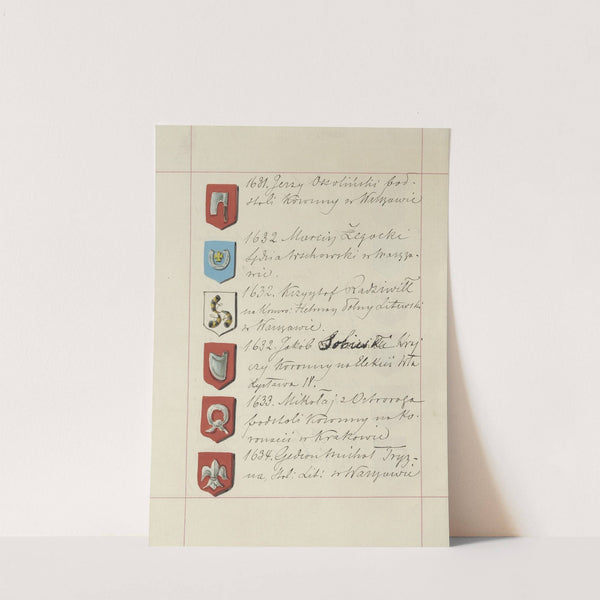 1631. Jerzy Ossoliński pod-
stoli Koronny w Warszawie
1632. Marcin Żegocki
Sędzia Wschowski w Warsza-
wie.
1632. Krzysztof Radziwiłł
na Konwo: Hetman Polny Litewski
w Warszawie.
1632. Jakób Sobieski Kraj-
czy Koronny na Elekcii Wła
dysława IV.
1633. Mikołaj z Ostroroga
podstoli Koronny na Ko-
ronacii w Krakowie
1634. Gedeon Michał Tryz-
na, Stol: Lit: w Warszawie